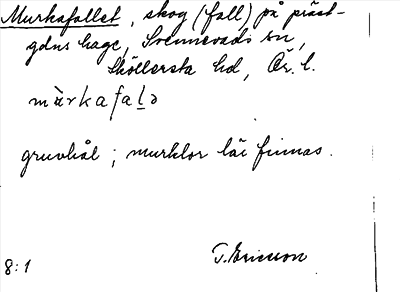 Murkafallet, skog (fall) på präst-
gdns hage, Svennevads sn,
Sköllersta hd, Ör. l.
mặrkafaḷə
gruvhål; murklor lär finnas.
T. Ericsson
8:1